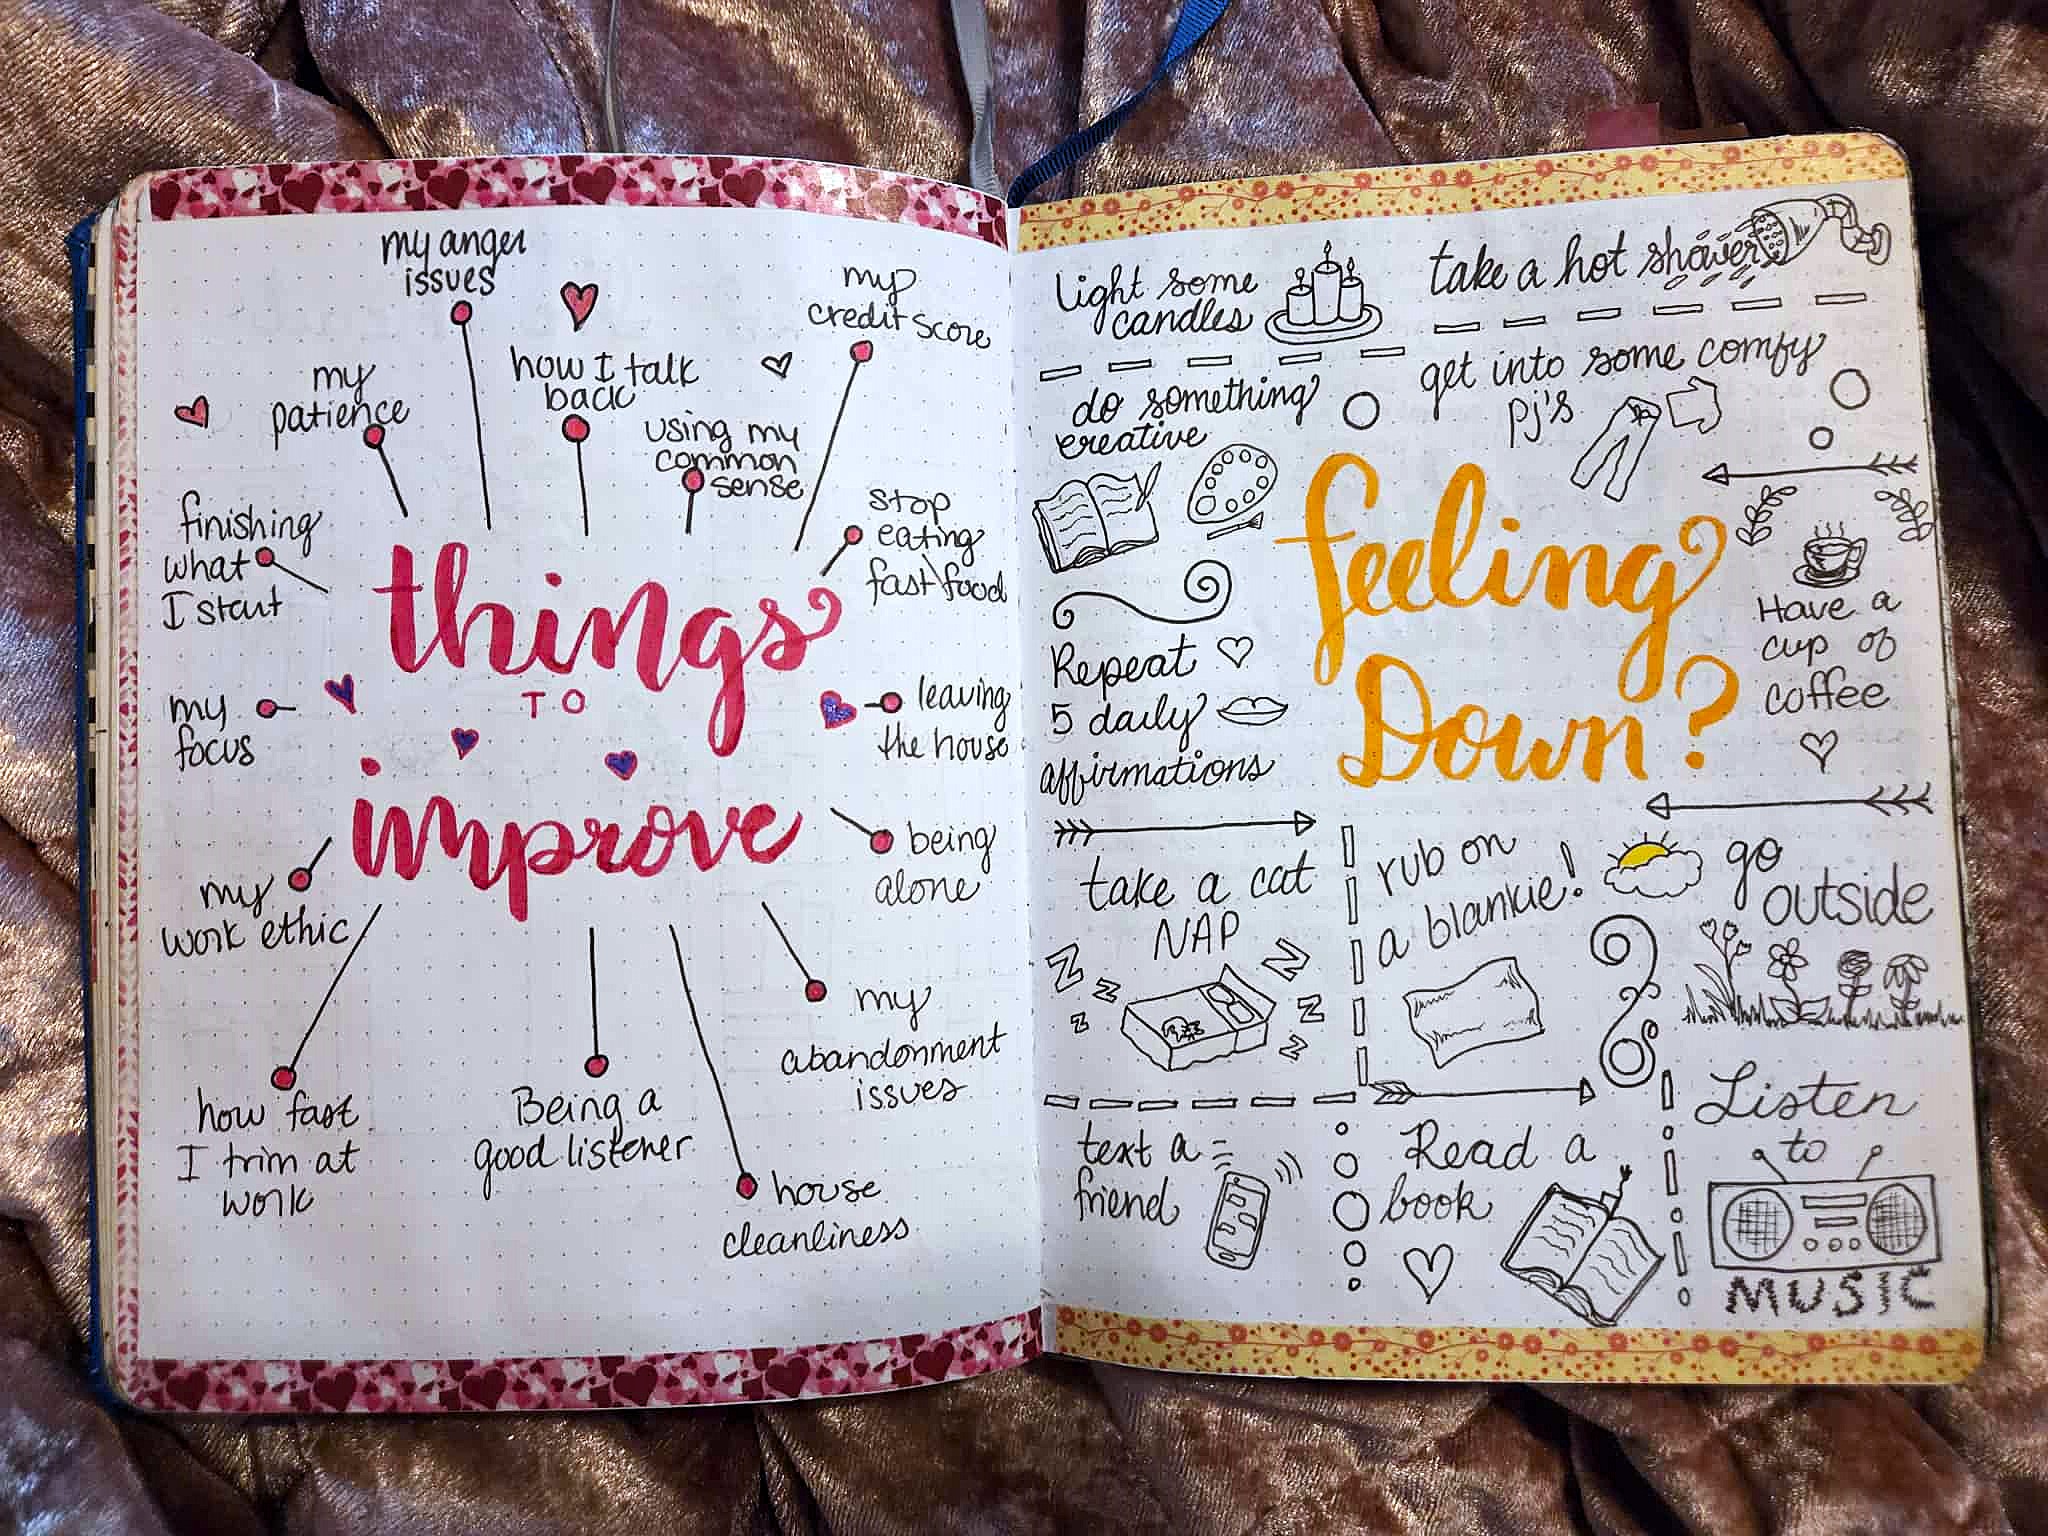 my anger
issues
my
credit score
how I talk
back
my
patience
using my
common
sense
stop
eating
fast food
finishing
what
I start
things
TO
improve
my
focus
leaving
the house
being
alone
my
work ethic
my
abandonment
issues
how fast
I trim at
work
Being a
good listener
house
cleanliness
light some
candles
take a hot shower
do something
creative
get into some comfy
pj's
feeling
Down?
Have a
cup of
coffee
Repeat
5 daily
affirmations
take a cat
NAP
Z
Z
Z
Z
Z
Z
rub on
a blankie!
go
outside
text a
friend
Read a
book
Listen
to
MUSIC